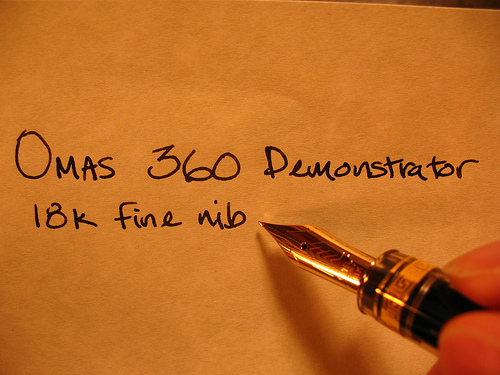 Omas 360 Demonstrator
18k fine nib